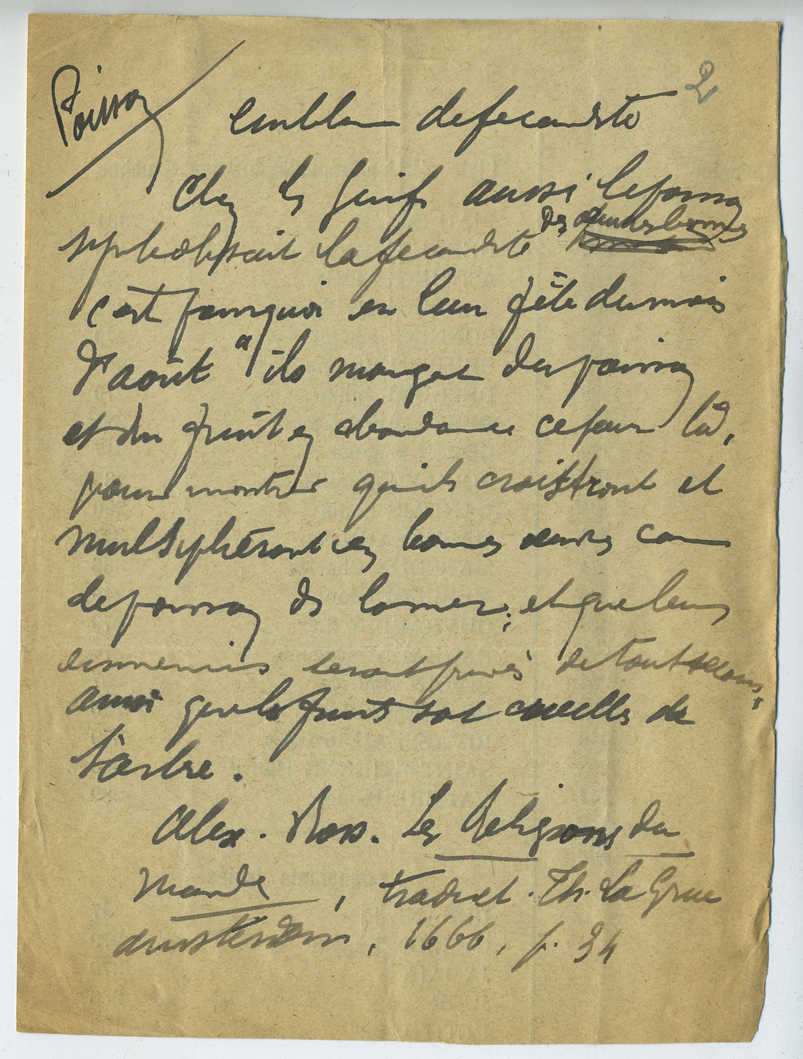 Poisson
2
emblème de fécondité
Chez les Juifs aussi le poisson
symbolisait la fécondité des
c'est pourquoi en leur fête du mois
d'août "ils mangent du poisson
et du fruit en abondance ce jour là,
pour montrer qu'ils croistront et
multiplieront en bonnes œuvres comme
le poisson de la mer; et que leurs
ennemis seront privés de tout secours,
ainsi que les fruits sont cueillis de
l'arbre.
Alex. Ross. Les Religions du
Monde, traduct. Th. La Grue
Amsterdam, 1666, p. 34